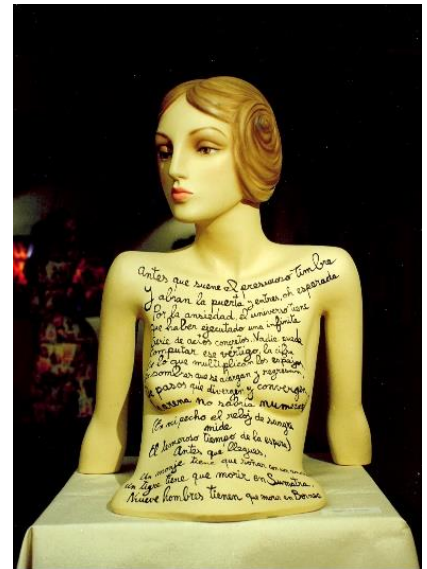 Antes que suene el presuroso timbre
Y abran la puerta y entres, oh esperada
Por la ansiedad, el universo tiene
Que haber ejecutado una infinita
serie de actos concretos. Nadie puede
computar ese vértigo, la cifra
De lo que multiplican los espejos,
De sombras que se alargan y regresan,
De pasos que divergen y convergen.
La arena no sabría numerarlos
(En mi pecho el reloj de sangre
mide
El temeroso tiempo de la espera)
Antes que llegues,
Un monje tiene que soñar con un
Un tigre tiene que morir en Sumatra,
Nueve hombres tienen que morir en Borneo